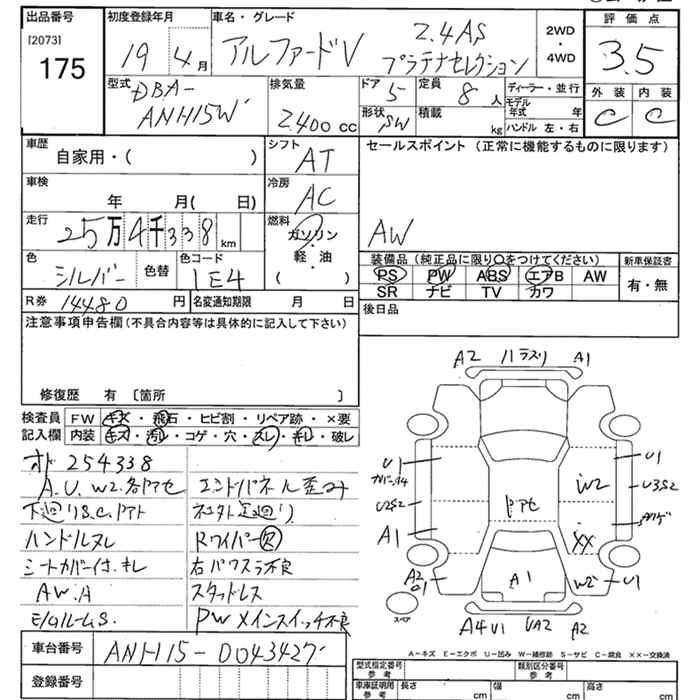 出品番号
[2073]
175
初度登録年月
19 年 4 月
車名・グレード
アルファードV 2.4AS
プラチナセレクション
2WD
・
4WD
評価点
3.5
外装 内装
C C
型式
DBA-
ANH15W
排気量
2400 cc
ドア
5
形状
SW
定員
8 人
積載
kg
ディーラー・並行
モデル
年式 年
ハンドル 左・右
車歴
自家用・( )
シフト
AT
車検
年 月( 日)
冷房
AC
走行
25万4千338 km
燃料
ガソリン
・
軽油
( )
色
シルバー
色替
色コード
1E4
R券 14480 円
名変通知期限 月 日
セールスポイント (正常に機能するものに限ります)
AW
装備品 (純正品に限り〇をつけてください)
PS PW ABS エアB AW
SR ナビ TV カワ
新車保証書
有・無
後日品
注意事項申告欄(不具合内容等は具体的に記入して下さい)
修復歴 有 〔箇所 〕
検査員
記入欄
FW キズ・飛石・ヒビ割・リペア跡・×要
内装 キズ・汚レ・コゲ・穴・スレ・キレ・破レ
254338
A.U.W2.各アセ
下廻りS.C.アト
ハンドルスレ
シートカバー付.キレ
AW.A
エンドパネル歪み
Rワイパー
右パワスラ不良
スタッドレス
PWメインスイッチ不良
A2 ハラスリ A1
U1
U2S2
A1
A2
U1
W2
U3S2
ドアセ
XX
A1
W2 U1
スペア
A4U1 UA2 A2
A-キズ E-エクボ U-凹み W-補修跡 S-サビ C-腐食 ××-交換済
車台番号 ANH15-0043427
登録番号
型式指定番号
参考
類別区分番号
参考
車庫証明用
参考
長さ cm
幅 cm
高さ cm